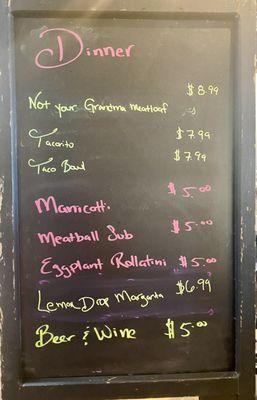 Dinner
$8.99
Not your Grandma meatloaf
Tacorito $7.99
Taco Bowl $7.99
Manicotti $5.00
Meatball Sub $5.00
Eggplant Rollatini $5.00
Lemon Drop Margarita $6.99
Beer & Wine $5.00